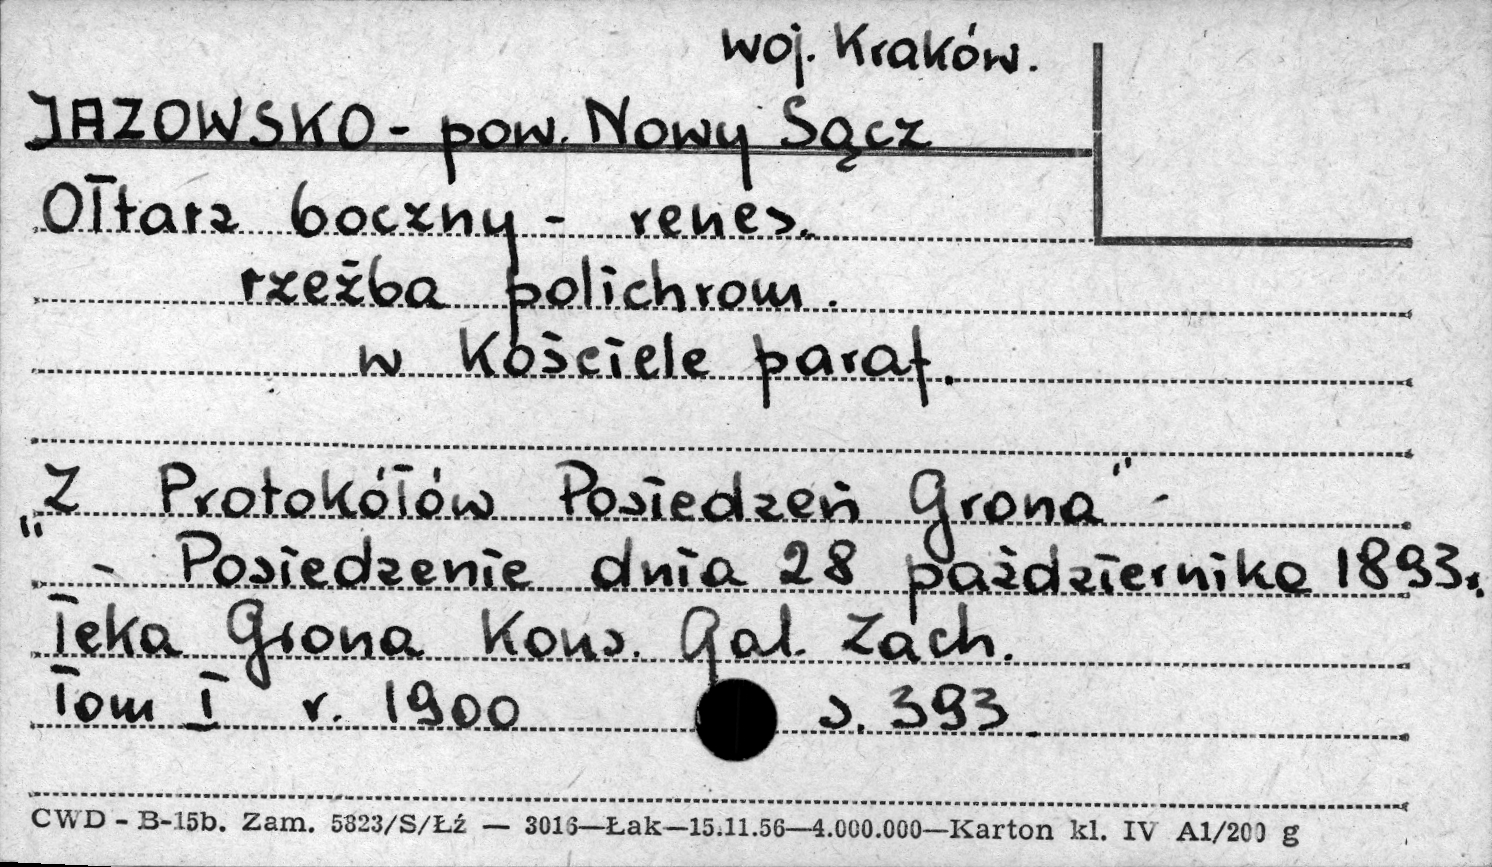 woj. Kraków.
JAZOWSKO - pow. Nowy Sącz
Ołtarz boczny - renes.
rzeźba polichrom.
w Kościele paraf.
„Z Protokółów Posiedzeń Grona" -
- Posiedzenie dnia 28 października 1893.
Teka Grona Kons. Gal. Zach.
Tom I r. 1900 s. 393
CWD - B-15b. Zam. 5823/S/Łź — 3016—Łak—15.11.56—4.000.000—Karton kl. IV A1/200 g